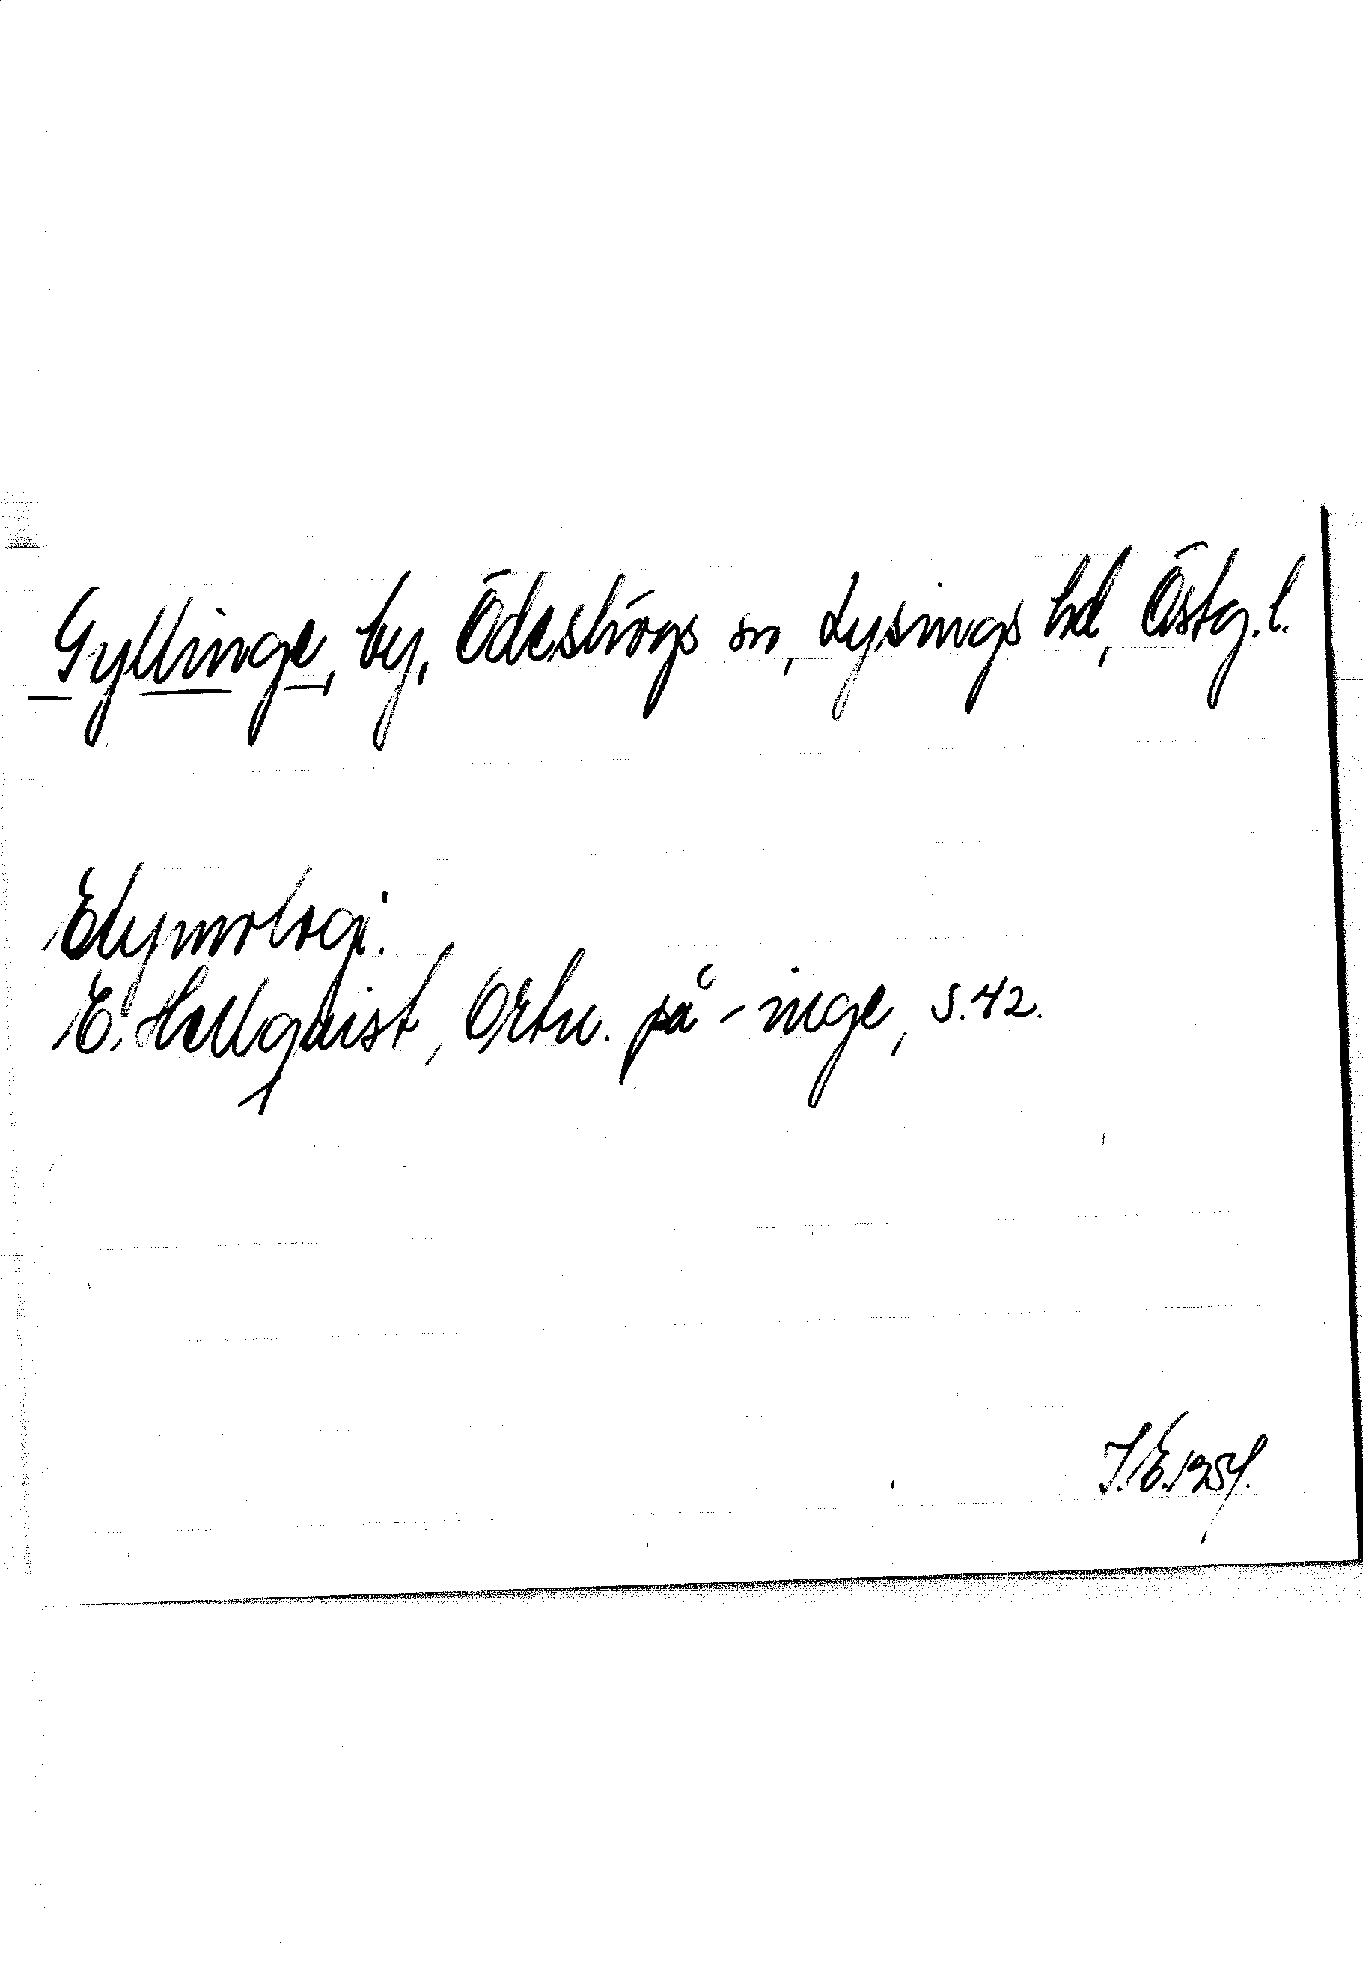 Gyllinge, by, Ödeshögs sn, Lysings hd, Östg. l.
Etymologi:
E. Hellquist, Ortn. på -inge, s. 42.
J.E. 1954.